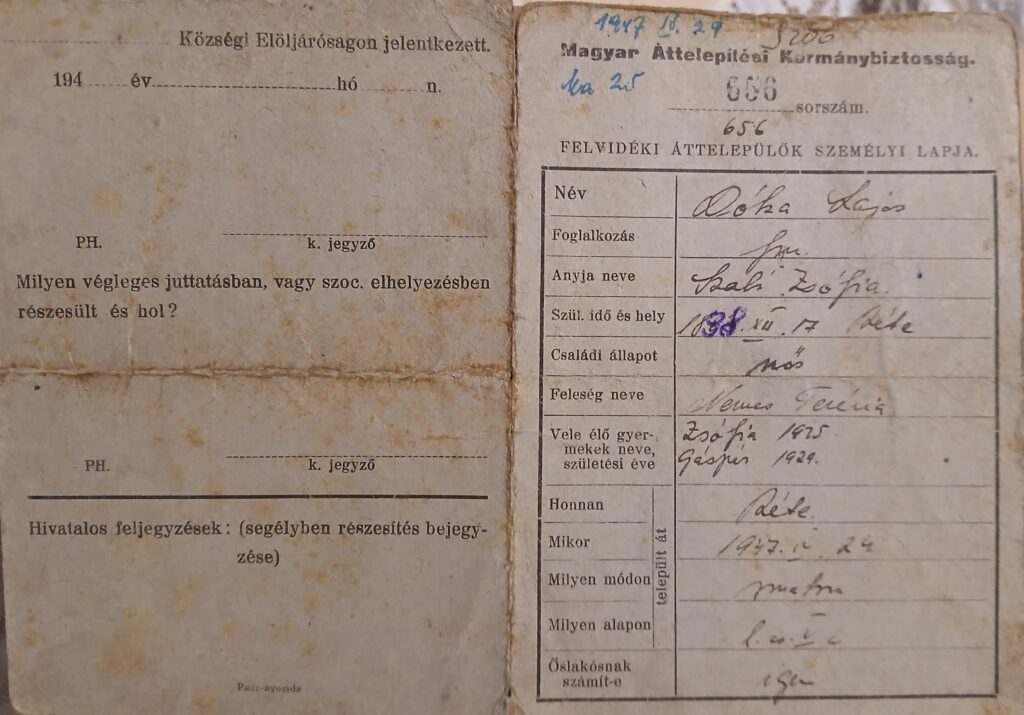 Községi Elöljáróságon jelentkezett.
194 év hó n.
PH. k. jegyző
Milyen végleges juttatásban, vagy szoc. elhelyezésben
részesült és hol?
PH. k. jegyző
Hivatalos feljegyzések: (segélyben részesítés bejegy-
zése)
Paár-nyomda
1947 IV. 29
Magyar Áttelepítési Kormánybiztosság.
25
sorszám.
656
FELVIDÉKI ÁTTELEPÜLŐK SZEMÉLYI LAPJA.
Név Dóka Lajos
Foglalkozás
Anyja neve Szabó Zsófia.
Szül. idő és hely 1898. XII. 17 Réte
Családi állapot nős
Feleség neve Nemes Terézia
Vele élő gyer-
mekek neve,
születési éve
Zsófia 1925
Gáspár 1929.
települt át
Honnan Réte.
Mikor 1947. IV. 24
Milyen módon
Milyen alapon
Őslakósnak
számít-e igen